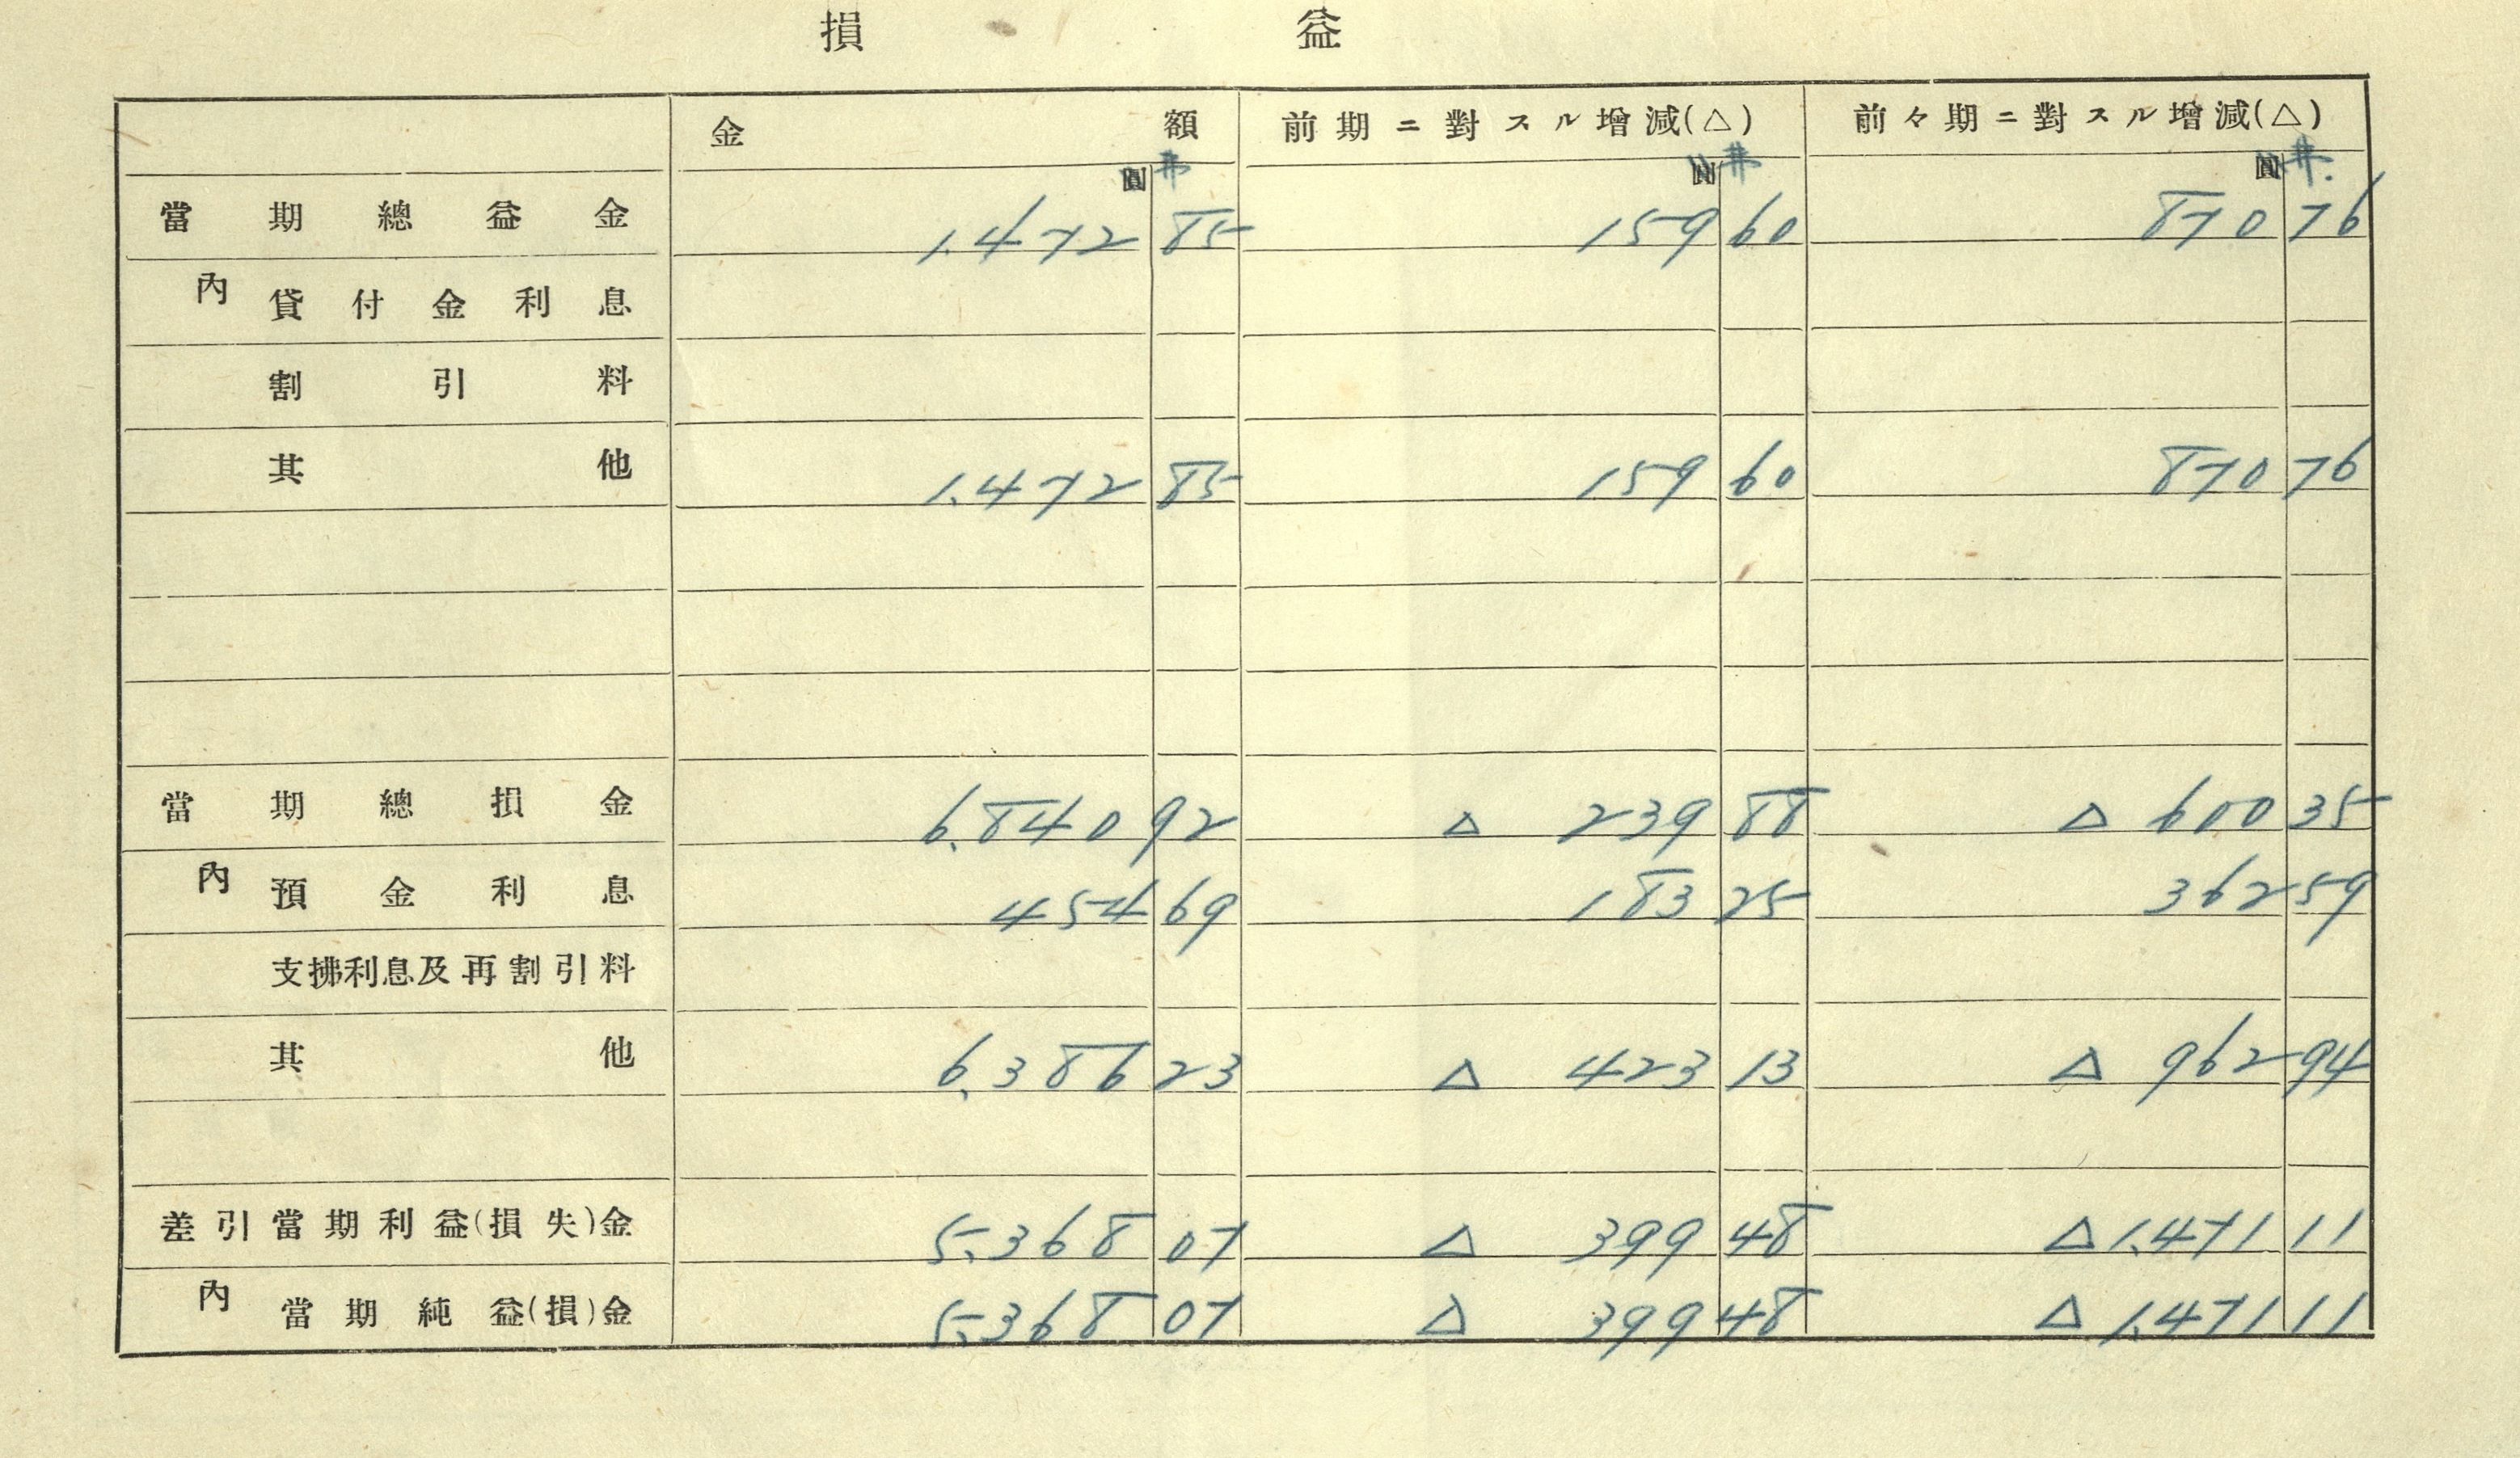 損益
金額 前期ニ對スル增減(△) 前々期ニ對スル增減(△)
當期總益金 1.472 85 159 60 870 76
內 貸付金利息
割引料
其他 1.472 85 159 60 870 76
當期總損金 6.840 92 △ 239 88 △ 600 35
內 預金利息 454 69 183 25 362 59
支拂利息及再割引料
其他 6.386 23 △ 423 13 △ 962 94
差引當期利益(損失)金 5.368 07 △ 399 48 △ 1.471 11
內 當期純益(損)金 5.368 07 △ 399 48 △ 1.471 11